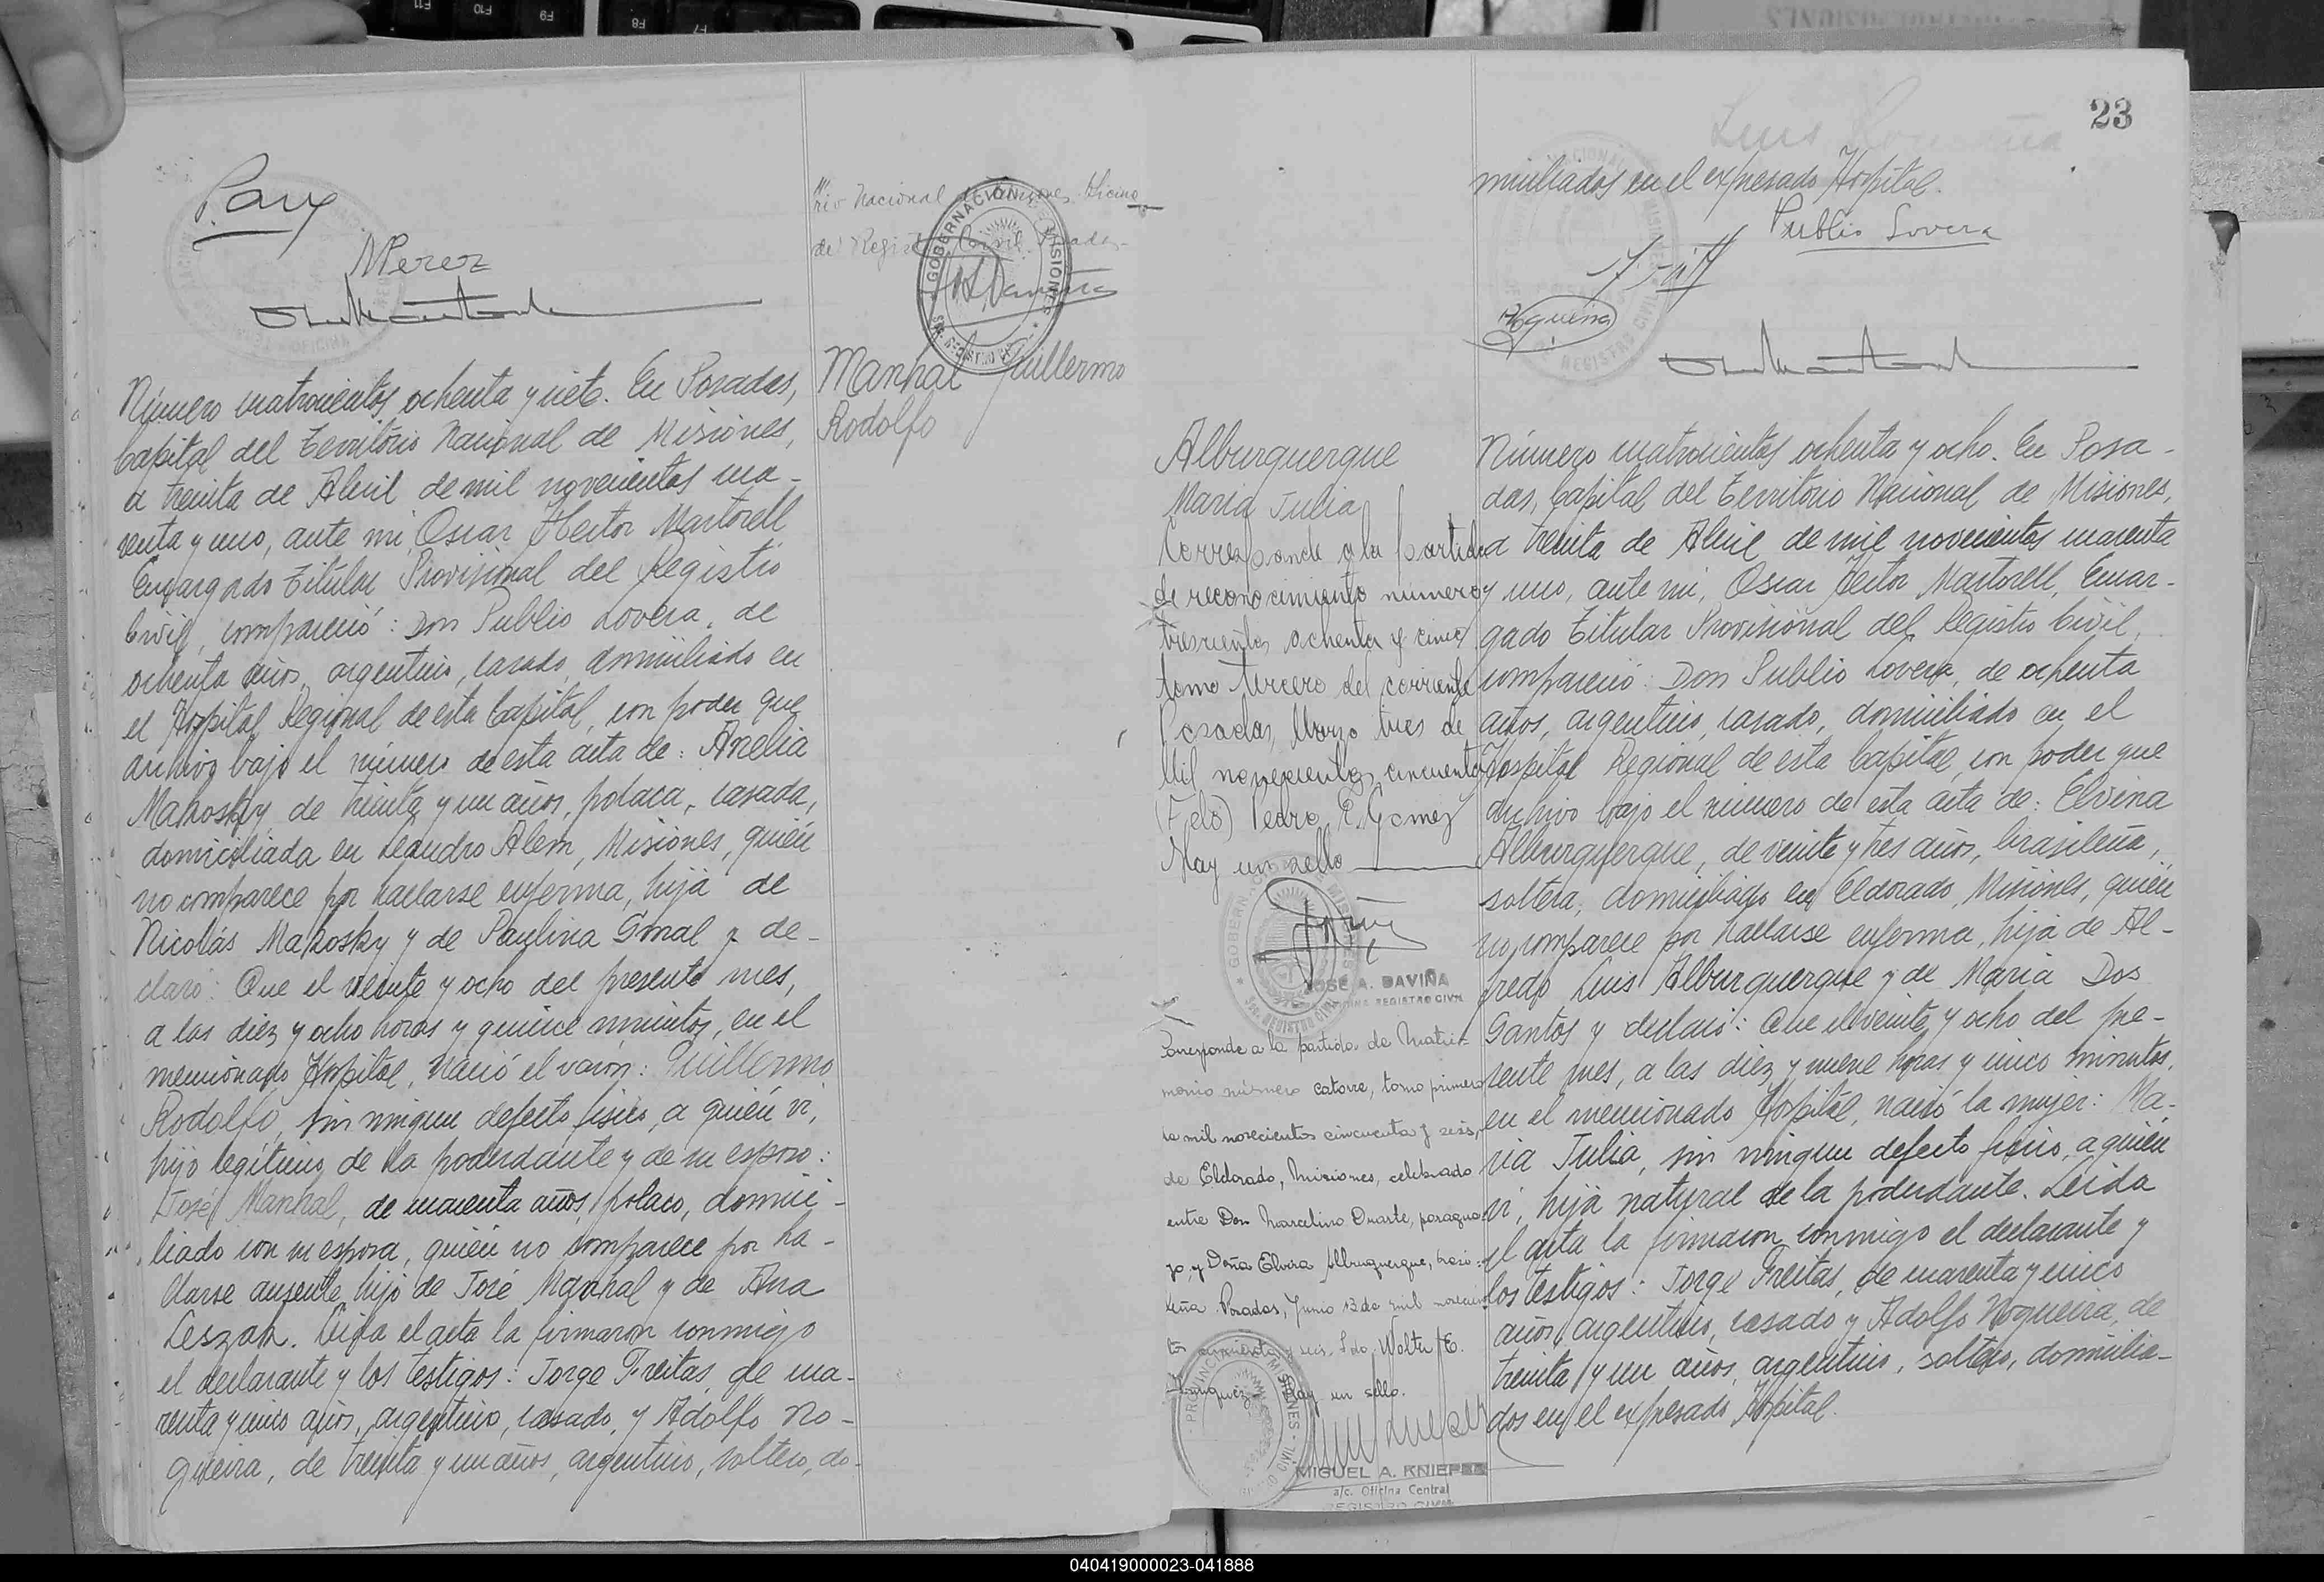 Pary
MPerez
Número cuatrocientos ochenta y siete. En Posadas,
Capital del Territorio Nacional de Misiones,
a treinta de Abril de mil novecientos cua-
renta y uno, ante mi, Oscar Hector Martorell
Encargado Titular Provisional del Registro
Civil, compareció: Don Publio Lovera, de
ochenta años, argentino, casado, domiciliado en
el Hospital Regional de esta Capital, con poder que
archivo bajo el número de esta acta de: Anelia
Makosky de treinta y un años, polaca, casada,
domiciliada en Leandro Alem, Misiones, quién
no comparece por hallarse enferma, hija de
Nicolás Makosky y de Paulina Gmal y de-
claró: Que el veinte y ocho del presente mes,
a las diez y ocho horas y quince minutos, en el
mencionado Hospital, nació el varón: Guillermo
Rodolfo, sin ningun defecto fisico, a quién vi,
hijo legítimo de la poderdante y de su esposo:
José Manhal, de cuarenta años, polaco, domici-
liado con su esposa, quién no comparece por ha-
llarse ausente, hijo de José Manhal y de Ana
Leszak. Leída el acta la firmaron conmigo
el declarante y los testigos: Jorge Freitas, de cua-
renta y cinco años, argentino, casado, y Adolfo No-
gueira, de treinta y un años, argentino, soltero, do-
rio Nacional de Misiones
de Registro Civil Posadas
GOBERNACION MISIONES
REGISTRO CIVIL
Manhal Guillermo
Rodolfo
23
Luis
miciliados en el expresado Hospital.
Publio Lovera
Nogueira
REGISTRO CIVIL
Alburquerque
María Julia
Corresponde a la partida
de reconocimiento número
trescientos ochenta y cinco
tomo tercero del corriente
Posadas, Marzo tres de
Mil novecientos cincuenta
(Fdo) Pedro E. Gomez
Hay un sello
JOSÉ A. DAVIÑA
OFICINA REGISTRO CIVIL
Corresponde a la partida de Matri-
monio número catorce, tomo primero
de mil novecientos cincuenta y seis,
de Eldorado, Misiones, celebrado
entre Don Marcelino Duarte, paragua-
yo, y Doña Elvira Alburquerque, brasi-
leña. Posadas, Junio 13 de mil novecien-
tos cincuenta y seis. Fdo. Walter E.
Hay un sello.
PROVINCIA MISIONES
MIGUEL A. KNIEP
a/c. Oficina Central
REGISTRO CIVIL
Número cuatrocientos ochenta y ocho. En Posa-
das, Capital del Territorio Nacional de Misiones,
a treinta de Abril de mil novecientos cuarenta
y uno, ante mi, Oscar Hector Martorell, Encar-
gado Titular Provisional del Registro Civil,
compareció: Don Publio Lovera, de ochenta
años, argentino, casado, domiciliado en el
Hospital Regional de esta Capital, con poder que
archivo bajo el número de esta acta de: Elvira
Alburquerque, de veinte y tres años, brasileña,
soltera, domiciliada en Eldorado, Misiones, quién
no comparece por hallarse enferma, hija de Al-
fredo Luis Alburquerque y de María Dos
Santos y declaró: Que el veinte y ocho del pre-
sente mes, a las diez y nueve horas y cinco minutos,
en el mencionado Hospital, nació la mujer: Ma-
ria Julia, sin ningun defecto fisico, a quién
vi, hija natural de la poderdante. Leída
el acta la firmaron conmigo el declarante y
los testigos: Jorge Freitas, de cuarenta y cinco
años, argentino, casado y Adolfo Nogueira, de
treinta y un años, argentino, soltero, domicilia-
dos en el expresado Hospital.
040419000023-041888